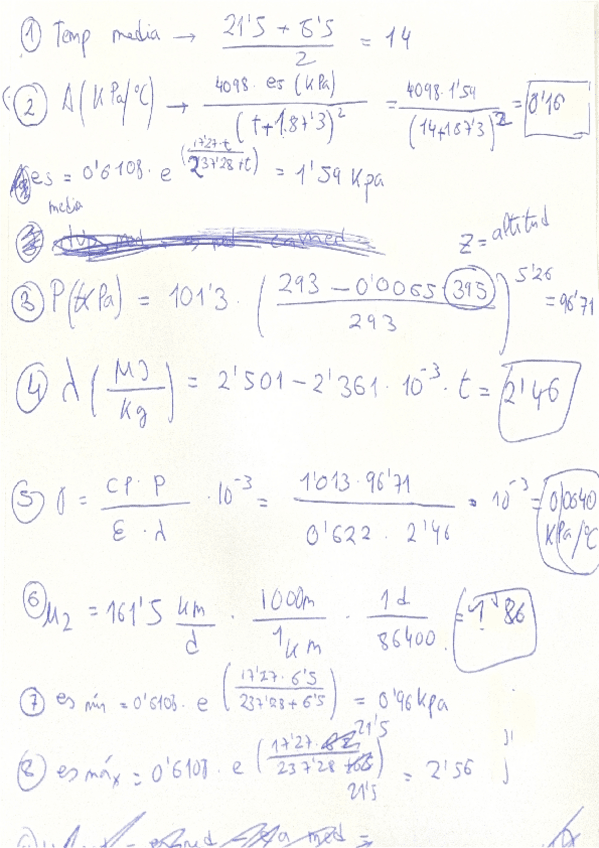 ① Temp media → (21'5 + 6'5) / 2 = 14
② Δ(KPa/°C) → (4098 · es (KPa)) / (t+187'3)² = (4098 · 1'59) / (14+187'3)² = 0'16
es media = 0'6108 · e^((17'27 · t) / (237'28 + t)) = 1'59 Kpa
z = altitud
③ P(KPa) = 101'3 · ((293 − 0'0065 · 395) / 293)^5'26 = 96'71
④ λ (MJ / Kg) = 2'501 − 2'361 · 10⁻³ · t = 2'46
⑤ γ = (cp · P) / (ε · λ) · 10⁻³ = (1'013 · 96'71) / (0'622 · 2'46) · 10⁻³ = 0'0640 KPa/°C
⑥ μ₂ = 161'5 km/d · 1000m / 1km · 1d / 86400 = 1'86
⑦ es mín = 0'6108 · e^((17'27 · 6'5) / (237'28 + 6'5)) = 0'96 kpa
⑧ es máx = 0'6108 · e^((17'27 · 21'5) / (237'28 21'5)) = 2'56